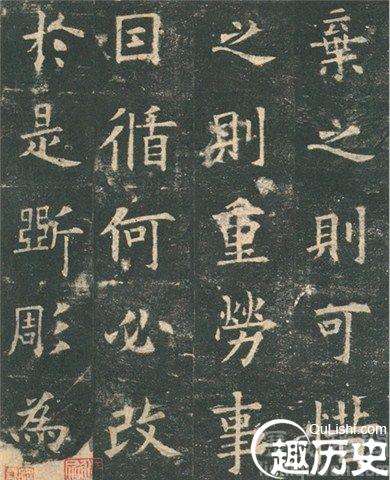 棄之則可惜
之則重勞事
因循何必改
於是斲彫為
QuLishi.com
趣历史